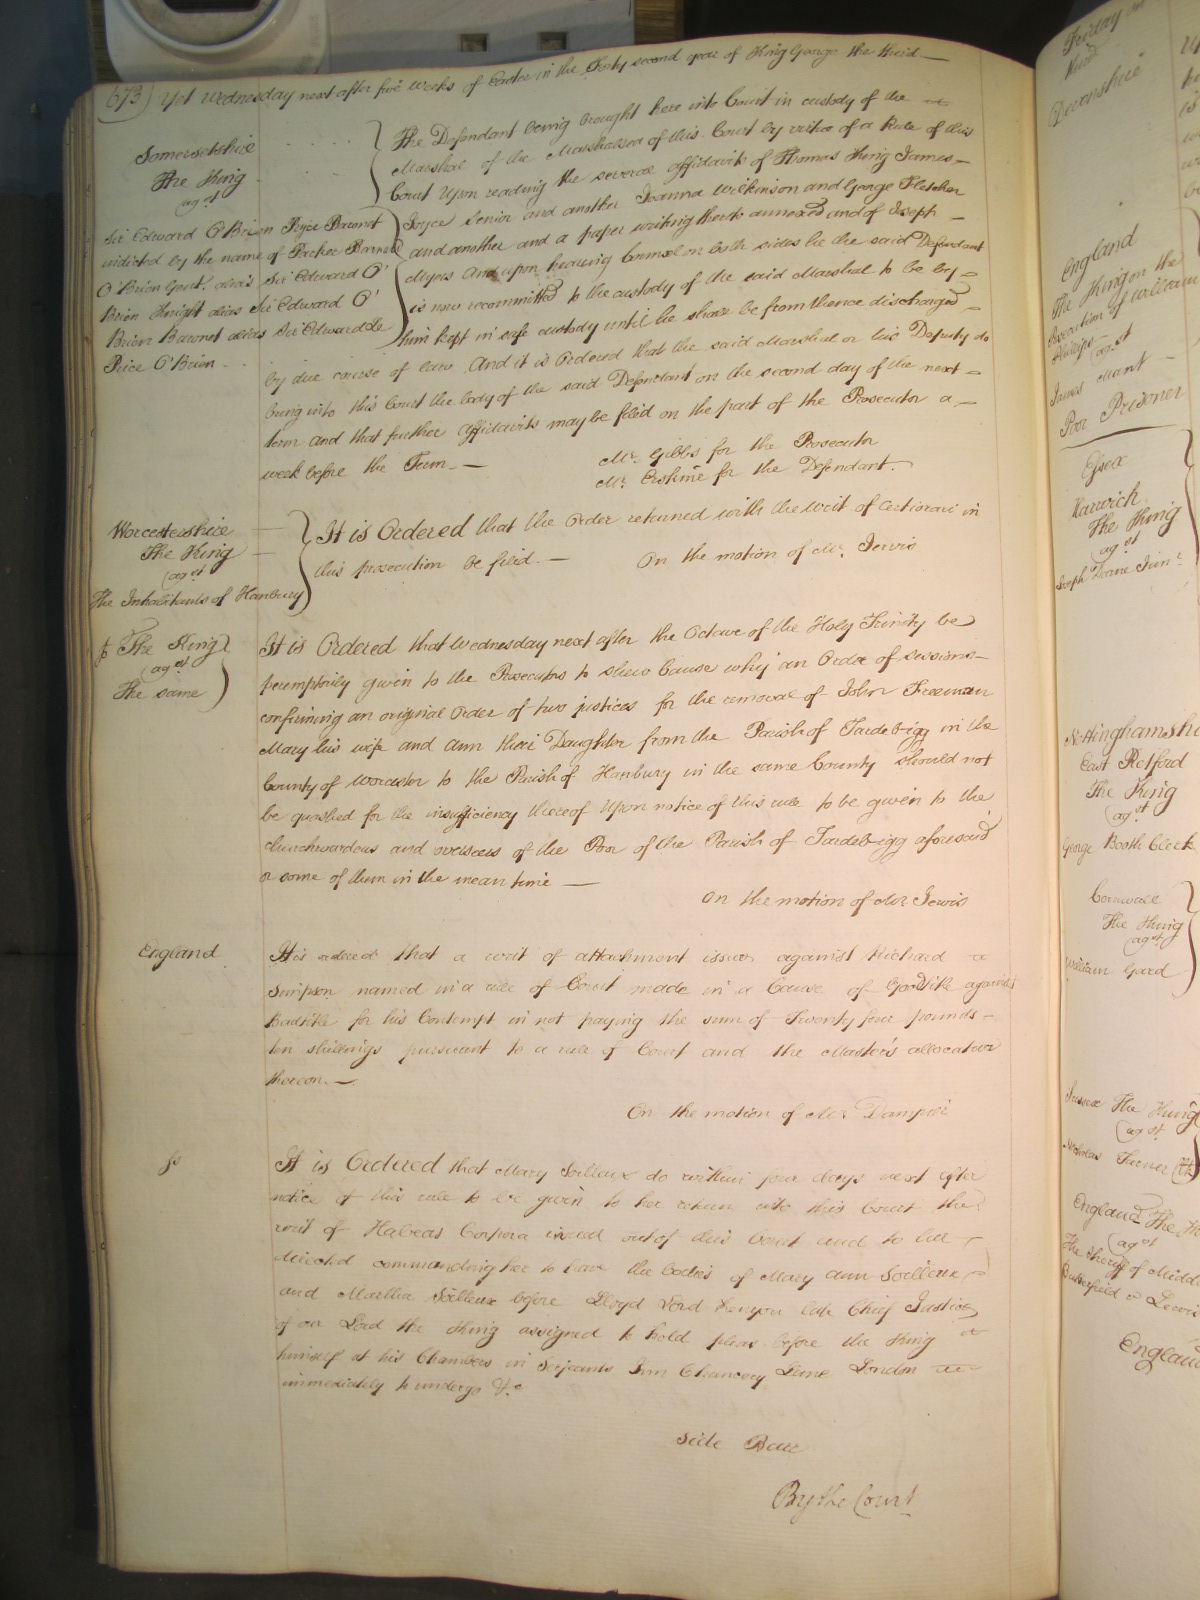 673) Yet Wednesday next after five Weeks of Easter in the Forty second year of King George the third
Somersetshire
The King
agst
Sir Edward O'Brien Pryce Baronet
indicted by the name of Parker Barnet
O'Brien Gent. alias Sir Edward O'
Brien Knight alias Sir Edward O'
Brien Baronet alias Sir Edward de
Price O'Brien
The Defendant being brought here into Court in custody of the
Marshal of the Marshalsea of this Court by virtue of a Rule of this
Court Upon reading the several affidavits of Thomas King James
Joyce Senior and another Joanna Wilkinson and George Fletcher
and another and a paper writing thereto annexed and of Joseph
Myers And upon hearing Counsel on both sides he the said Defendant
is now recommitted to the custody of the said Marshal to be by
him kept in safe custody until he shall be from thence discharged
by due course of law And it is Ordered that the said Marshal or his Deputy do
bring into this Court the body of the said Defendant on the second day of the next
term and that further affidavits may be filed on the part of the Prosecutor a
week before the Term
Mr. Gibbs for the Prosecutor
Mr. Erskine for the Defendant.
Worcestershire
The King
agst
The Inhabitants of Hanbury
It is Ordered that the Order returned with the writ of Certiorari in
this prosecution be filed.
On the motion of Mr. Jervis
The King
agst
The same
It is Ordered that Wednesday next after the Octave of the Holy Trinity be
peremptorily given to the Prosecutors to shew Cause why an Order of sessions
confirming an original Order of two justices for the removal of John Freeman
Mary his wife and Ann their Daughter from the Parish of Tardebigg in the
County of Worcester to the Parish of Hanbury in the same County should not
be quashed for the insufficiency thereof Upon notice of this rule to be given to the
churchwardens and overseers of the Poor of the Parish of Tardebigg aforesaid
or some of them in the mean time
On the motion of Mr. Jervis
England
It is ordered that a writ of attachment issue against Richard
Simpson named in a rule of Court made in a Cause of Goodtitle against
Badtitle for his Contempt in not paying the sum of Twenty four pounds
ten shillings pursuant to a rule of Court and the Master's allocatur
thereon.
On the motion of Mr. Dampier
It is Ordered that Mary Soilleux do within four days next after
notice of this rule to be given to her return into this Court the
writ of Habeas Corpora issued out of this Court and to her
directed commanding her to have the bodies of Mary Ann Soilleux
and Martha Soilleux before Lloyd Lord Kenyon late Chief Justice
of our Lord the King assigned to hold pleas before the King
himself at his Chambers in Serjeants Inn Chancery Lane London
immediately to undergo &c
Side Barr
By the Court
Friday
Devonshire
England
The King on the
Prosecution of William
Phillips
agst
James Mant
Poor Prisoner
Essex
Harwich
The King
agst
Joseph Deane Junr
Nottinghamshi
East Retford
The King
agst
George Booth Clerk
Cornwall
The King
agst
William Gard
Sussex The King
agst
Nicholas Turner
England The
agst
The Sheriff of Middl
Butterfield v Lewis
England